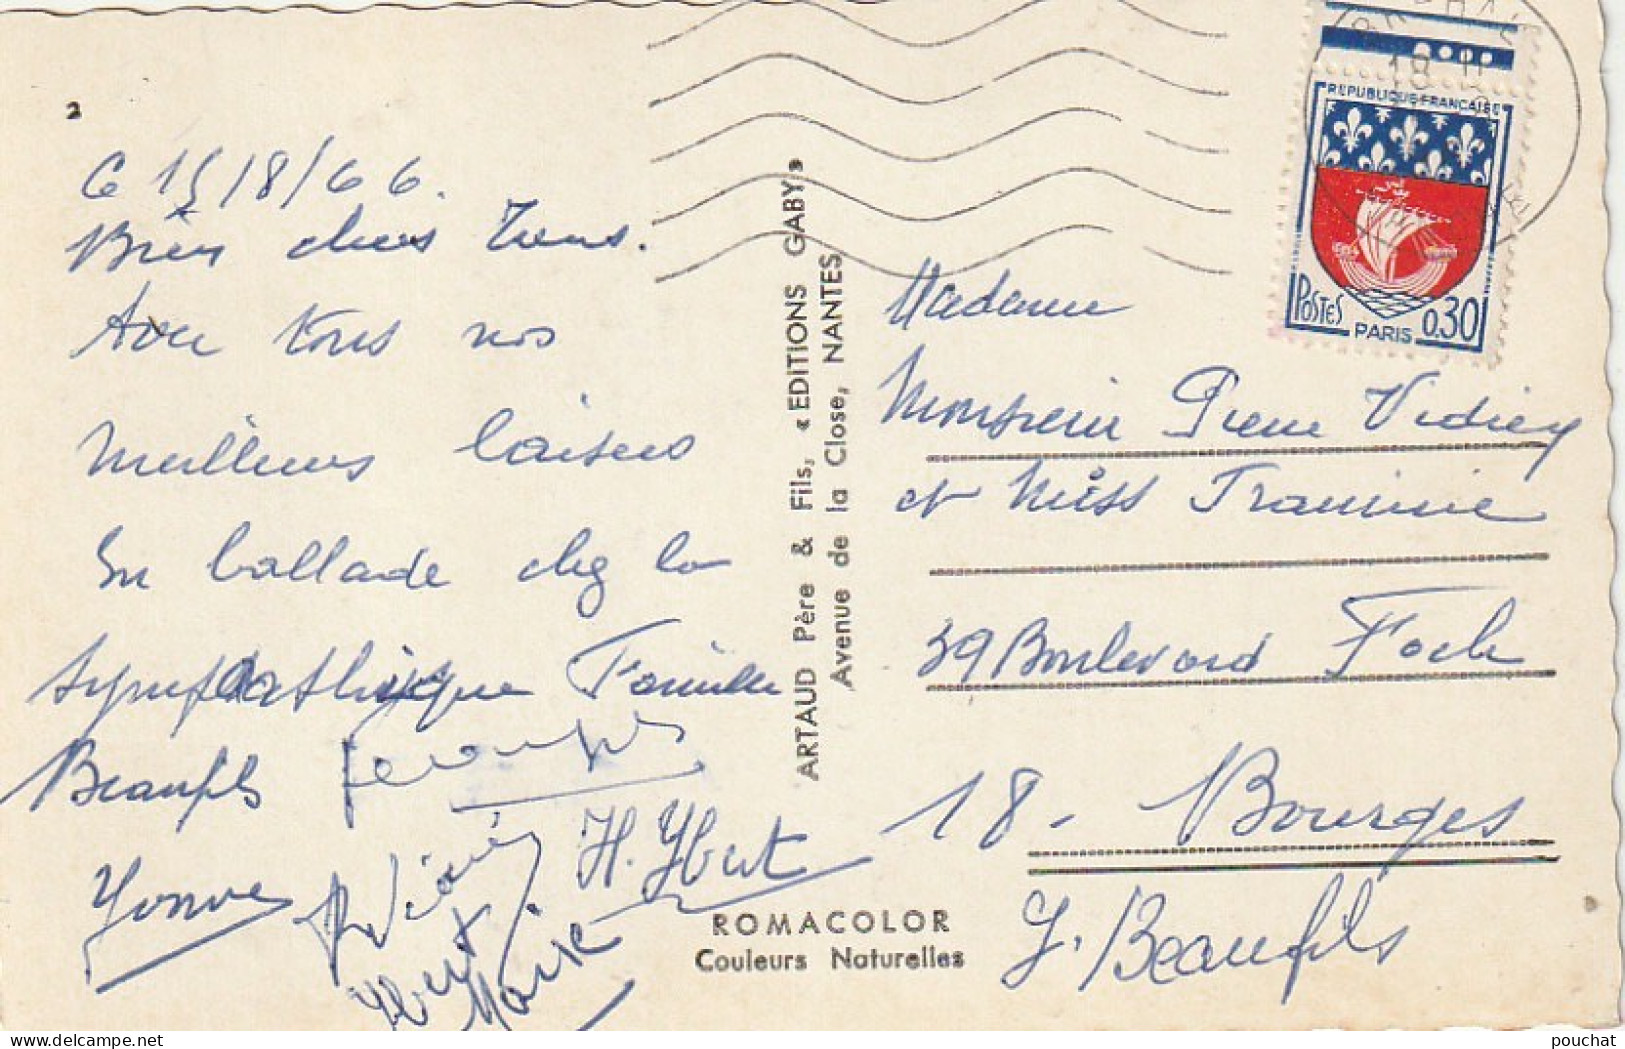 2
Ce 15/8/66.
Bien chers Tous.
Avec tous nos
Meilleurs baisers
En ballade chez la
Sympathique Famille
Beaufils
Yvonne
H. Ybert
Marie
Ybert
ARTAUD Père & Fils, « EDITIONS GABY »
Avenue de la Close, NANTES
ROMACOLOR
Couleurs Naturelles
18 H
REPUBLIQUE FRANCAISE
POSTES PARIS 0.30
Madame
Monsieur Pierre
et Miss Francine
39 Boulevard Foch
18 - Bourges
Y. Beaufils
pouchat